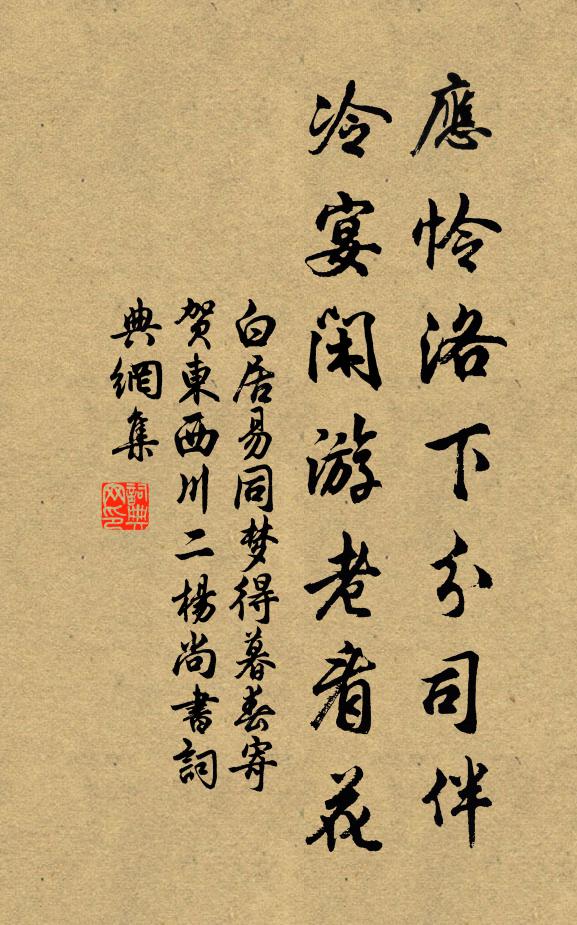 應憐洛下分司伴
冷宴閑游老看花
白居易同梦得暮春寄
贺東西川二楊尚書詞
典網集
詞典
网印